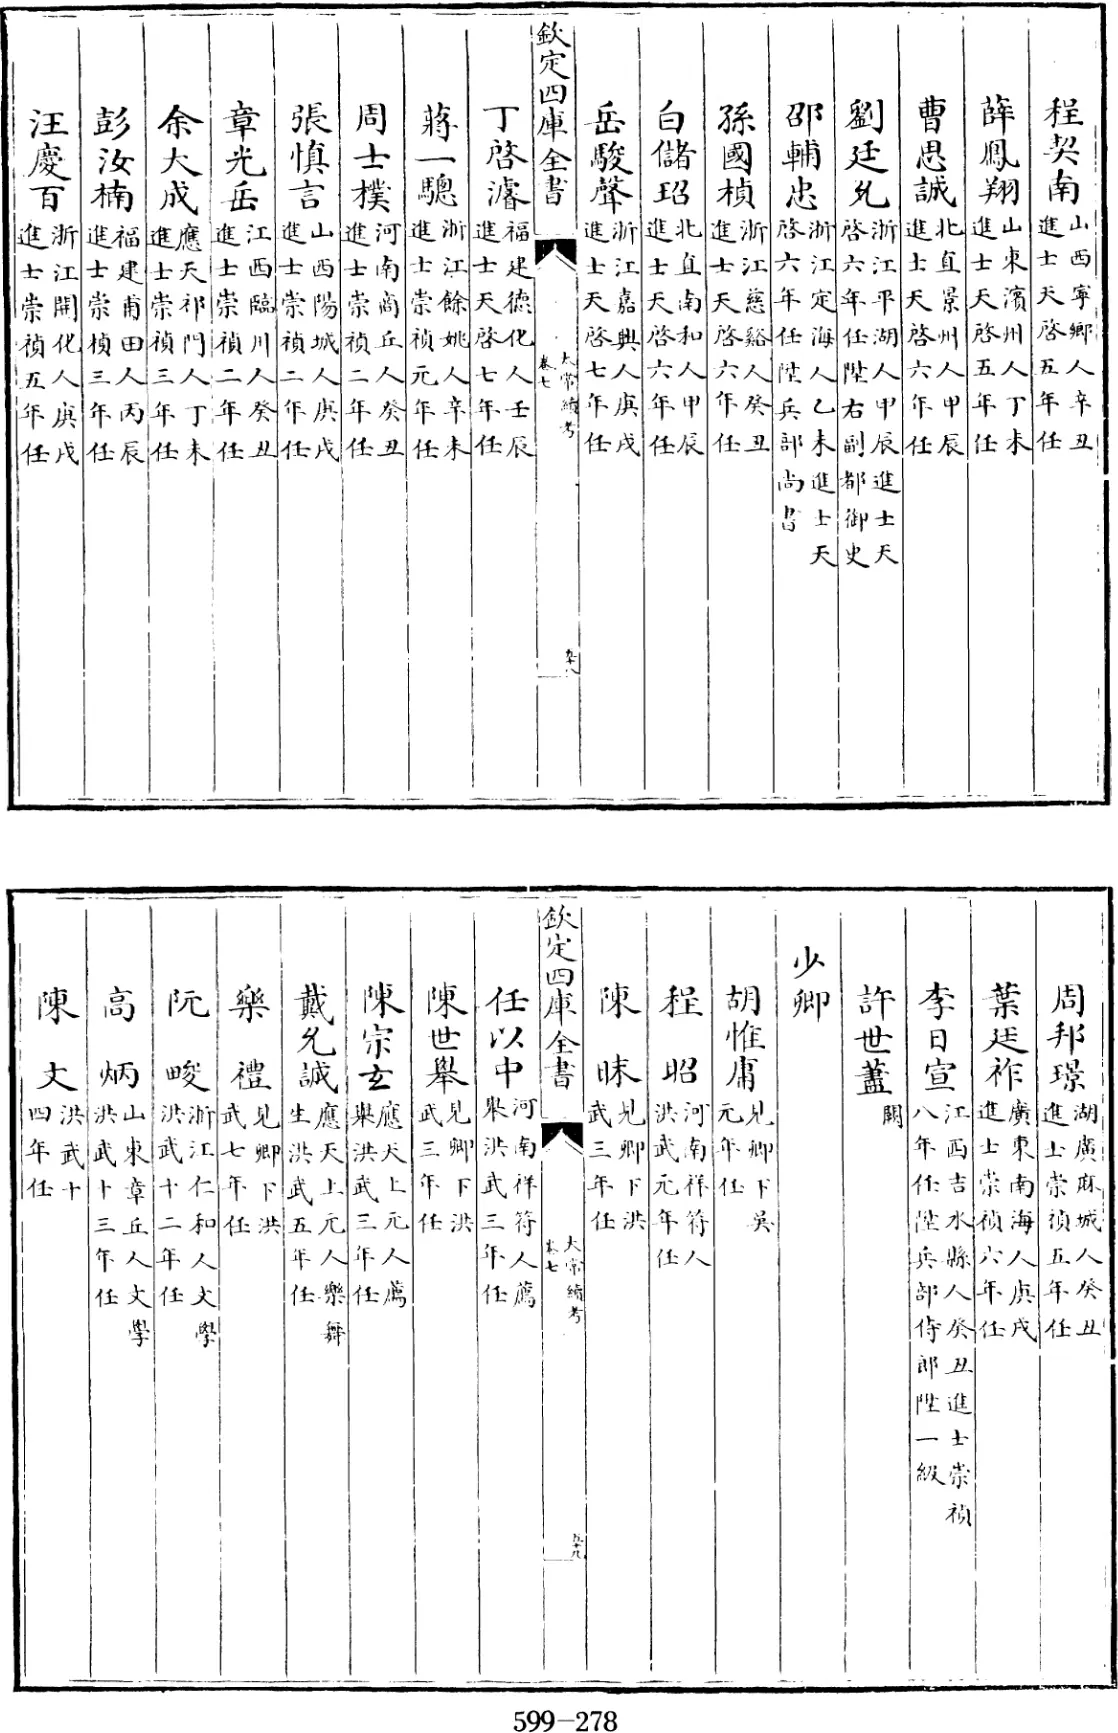 程契南山西寧鄉人辛丑進士天啓五年任
薛鳳翔山東濱州人丁未進士天啓五年任
曹思誠北直景州人甲辰進士天啓六年任
劉廷允浙江平湖人甲辰進士天啓六年任陞右副都御史
邵輔忠浙江定海人乙未進士天啓六年任陞兵部尚書
孫國楨浙江慈谿人癸丑進士天啓六年任
白儲玿北直南和人甲辰進士天啓六年任
岳駿聲浙江嘉興人庚戌進士天啓七年任
欽定四庫全書
太常續考
卷七
九十八
丁啓濬福建德化人壬辰進士天啓七年任
蔣一驄浙江餘姚人辛未進士崇禎元年任
周士樸河南商丘人癸丑進士崇禎二年任
張慎言山西陽城人庚戌進士崇禎二年任
章光岳江西臨川人癸丑進士崇禎二年任
余大成應天祁門人丁未進士崇禎三年任
彭汝楠福建莆田人丙辰進士崇禎三年任
汪慶百浙江開化人庚戌進士崇禎五年任
周邦璟湖廣麻城人癸丑進士崇禎五年任
葉廷祚廣東南海人庚戌進士崇禎六年任
李日宣江西吉水縣人癸丑進士崇禎八年任陞兵部侍郎陞一級
許世藎闕
少卿
胡惟庸見卿下吳元年任
程昭河南祥符人洪武元年任
陳昧見卿下洪武三年任
欽定四庫全書
太常續考
卷七
九十九
任以中河南祥符人薦舉洪武三年任
陳世舉見卿下洪武三年任
陳宗玄應天上元人薦舉洪武三年任
戴允誠應天上元人樂舞生洪武五年任
樂禮見卿下洪武七年任
阮畯浙江仁和人文學洪武十二年任
高炳山東章丘人文學洪武十三年任
陳文洪武十四年任
599-278